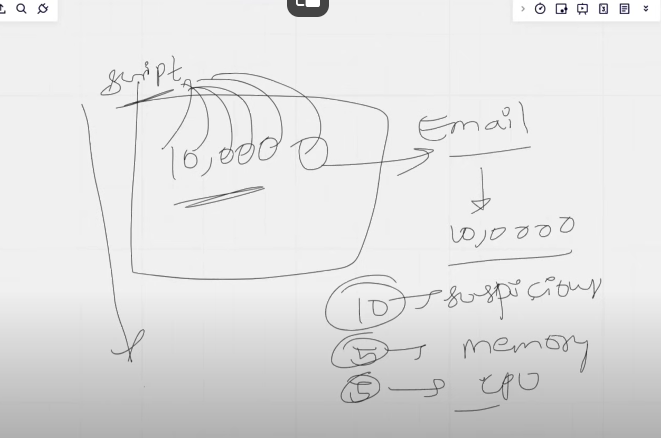 script
10,000 0
Email
10,0000
10 → suspicious
5 → memory
5 → CPU